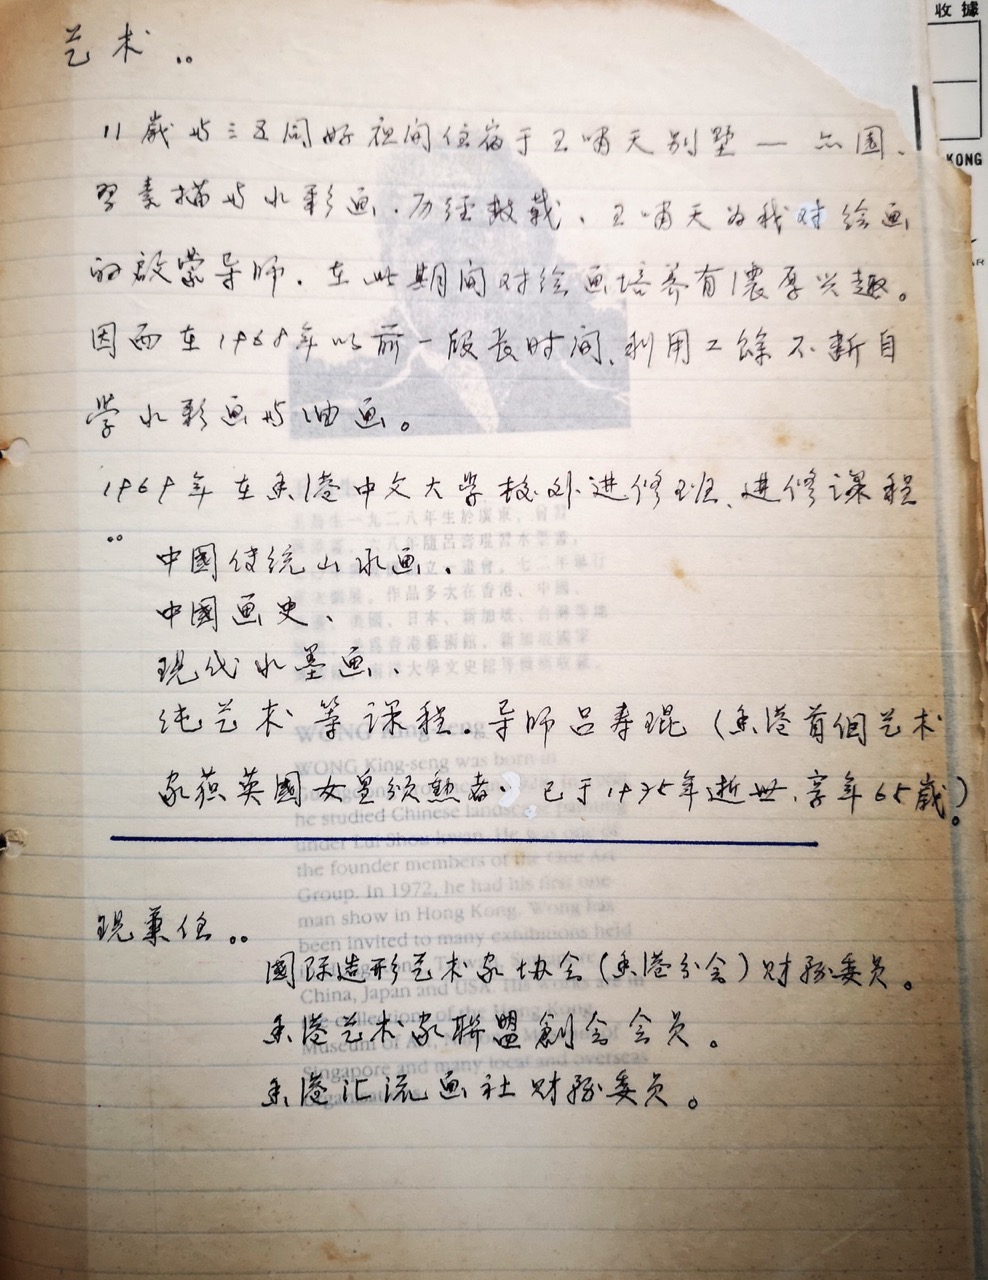 收據
KONG
艺术:
11歲与三五同好夜间住宿于王啸天别墅一 点园、
習素描与水彩画.历经数载、王啸天为我对绘画
的啟蒙导师.在此期间对绘画培养有濃厚兴趣。
因而在1968年以前一段長时间,利用工餘不断自
学水彩画与油画。
1969年在香港中文大学校外进修班、进修课程
:
中國传统山水画.
中國画史、
现代水墨画、
纯艺术等课程.导师吕寿琨(香港首個艺术
家获英國女皇颁勲者、已于1975年逝世、享年65歲)。
现兼任:
國际造形艺术家协会(香港分会)财務委员。
香港艺术家聯盟創会会员。
香港汇流画社财務委员。
一九二八年生於廣東、曾習
八年隨呂壽琨習水墨畫,
立一畫會。七二年舉行
作品多次在香港、中國、
美國、日本、新加坡、台灣等地
爲香港藝術館、新加坡國家
大學文史館等機構收藏。
WONG King-seng
WONG King-seng was born in
he studied Chinese landscape painting
under Lui Shou-kwan. He was one of
the founder members of the One Art
Group. In 1972, he had his first one-
man show in Hong Kong. Wong has
been invited to many exhibitions held
China, Japan and USA. His works are in
the collections of the Hong Kong
Museum of Art,
Singapore and many local and overseas